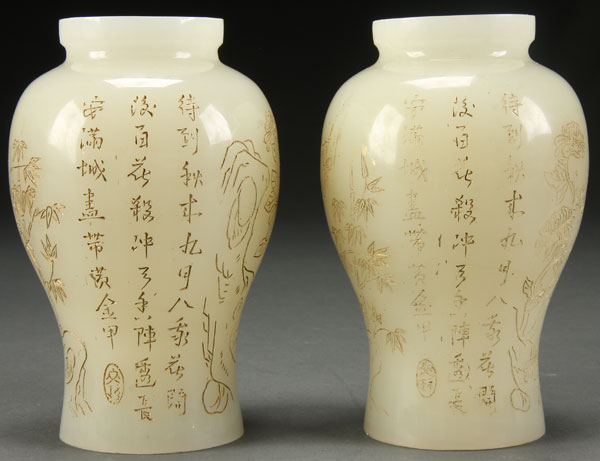 待到秋來九月八我花開
後百花殺冲天香陣透長
安滿城盡帶黃金甲
待到秋來九月八我花開
後百花殺冲天香陣透長
安滿城盡帶黃金甲